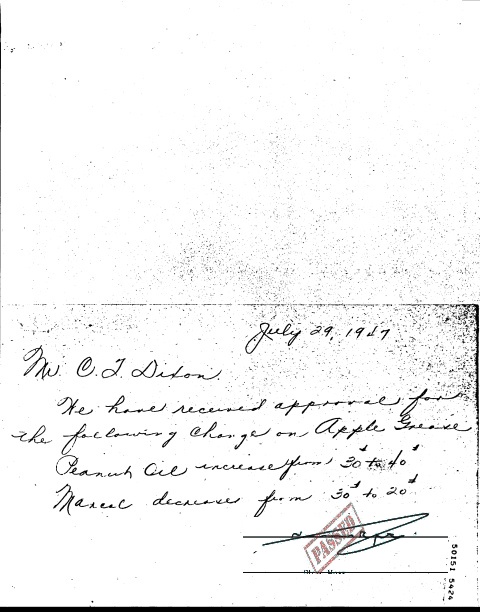 July 29, 1947
Mr C. T. Dixon.
We have received approval for
the following change on Apple Grease
Peanut Oil increase from 30# to 40#
decreases from 30# to 20#
PASSED
50151 5424